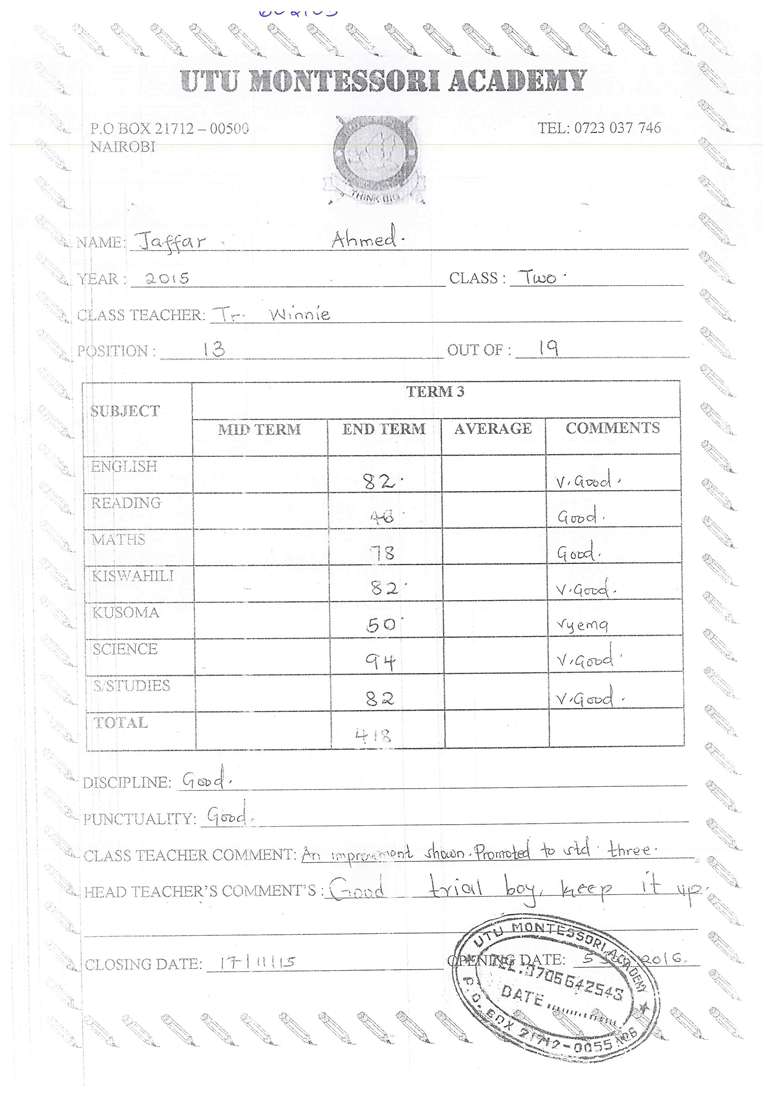 UTU MONTESSORI ACADEMY
P.O BOX 21712 – 00500 TEL: 0723 037 746
NAIROBI
THINK BIG
NAME: Jaffar Ahmed.
YEAR : 2015 CLASS : Two.
CLASS TEACHER: Tr. Winnie
POSITION : 13 OUT OF : 19
SUBJECT TERM 3
MID TERM END TERM AVERAGE COMMENTS
ENGLISH 82. V.Good.
READING Good.
MATHS 78 Good.
KISWAHILI 82. V.Good.
KUSOMA 50 vyema
SCIENCE 94 V.Good
S/STUDIES 82 V.Good.
TOTAL 418
DISCIPLINE: Good.
PUNCTUALITY: Good.
CLASS TEACHER COMMENT: An improvement shown. Promoted to std. three.
HEAD TEACHER'S COMMENT'S : Good trial boy, keep it up.
CLOSING DATE: 17/11/15 OPENING DATE: 5 2016.
UTU MONTESSORI ACADEMY
TEL.0705642543
DATE.............
P.O. BOX 21712-0055 NRB